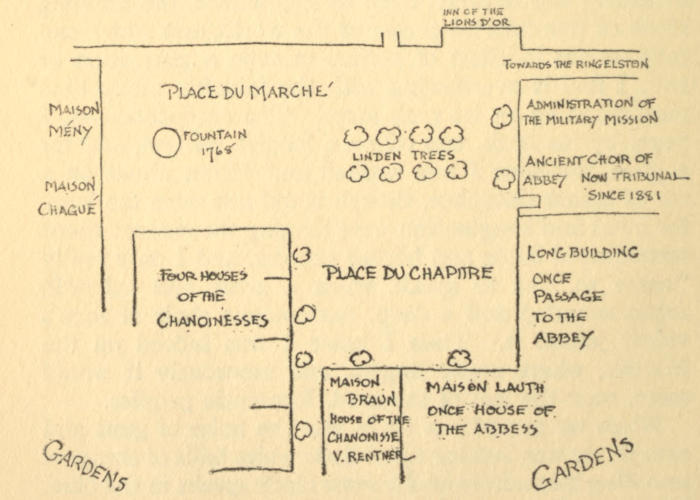 INN OF THE
LIONS D'OR
TOWARDS THE RINGELSTEIN
PLACE DU MARCHÉ
MAISON
MÉNY
FOUNTAIN
1768
LINDEN TREES
ADMINISTRATION OF
THE MILITARY MISSION
ANCIENT CHOIR OF
ABBEY NOW TRIBUNAL
SINCE 1881
MAISON
CHAGUÉ
FOUR HOUSES
OF THE
CHANOINESSES
PLACE DU CHAPITRE
LONG BUILDING
ONCE
PASSAGE
TO THE
ABBEY
MAISON
BRAUN
HOUSE OF THE
CHANONISSE
V. RENTNER
MAISON LAUTH
ONCE HOUSE OF
THE ABBESS
GARDENS
GARDENS